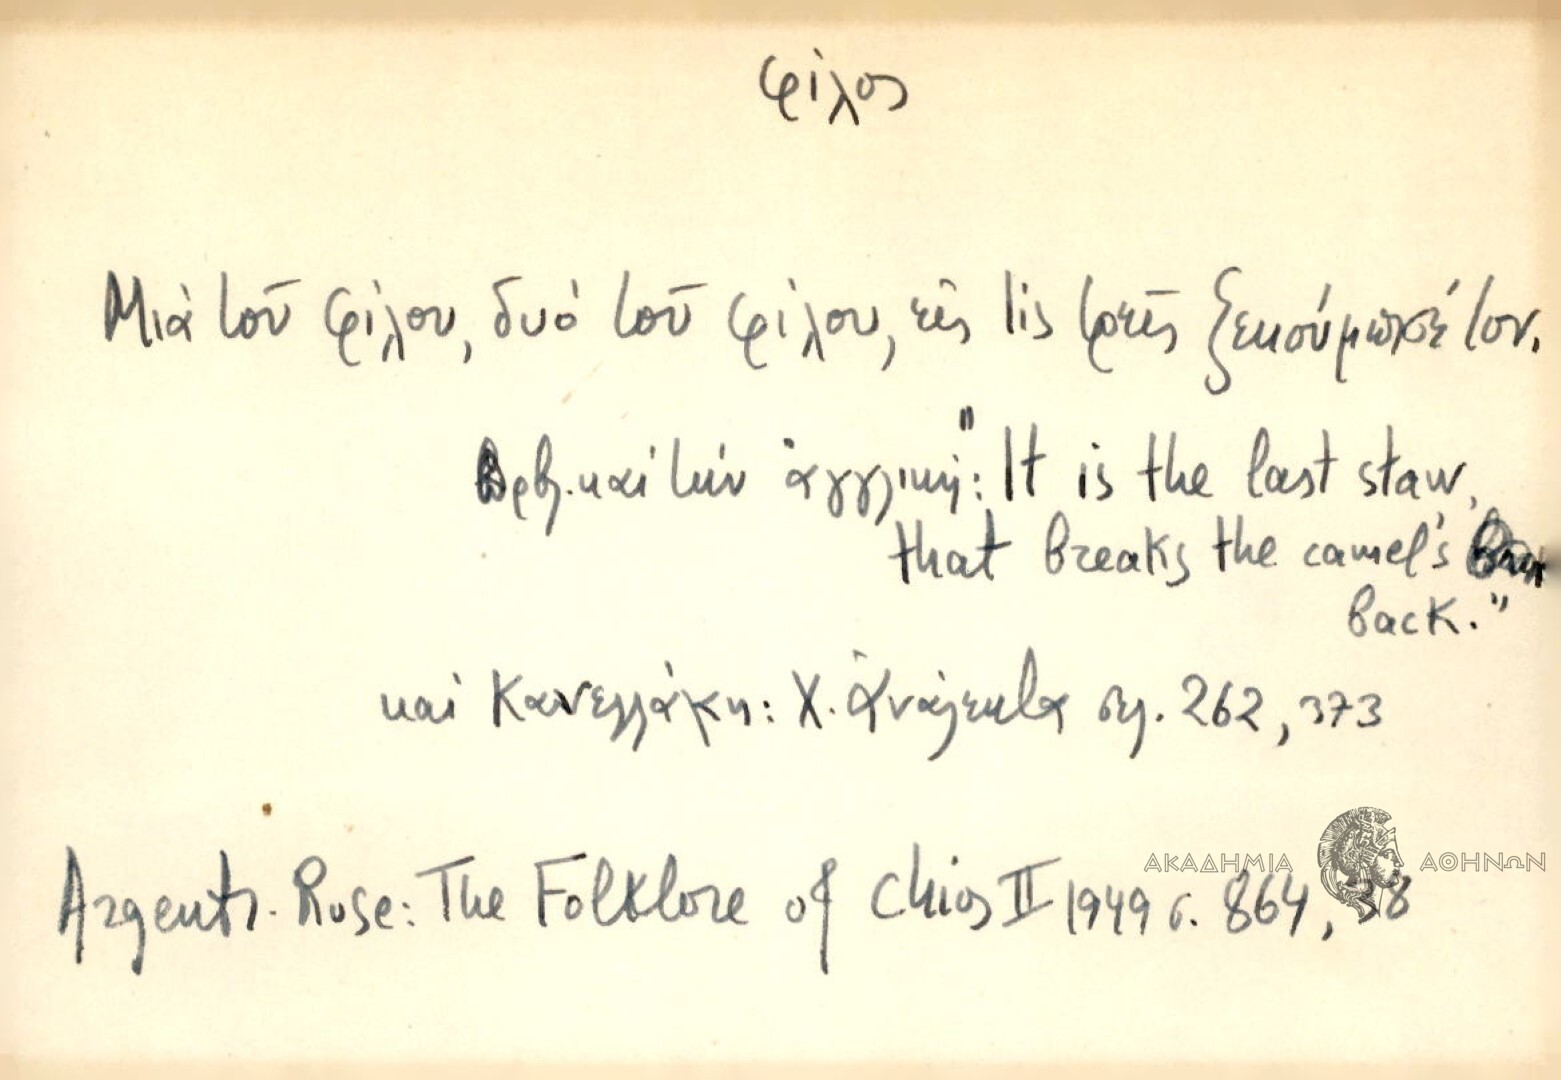 φίλος
Μιὰ τοῦ φίλου, δυὸ τοῦ φίλου, εἰς τὶς τρεῖς ξεκούμπισέ τον.
Πρβλ. καὶ τὴν ἀγγλικὴ: "It is the last staw,
that breaks the camel's
back."
καὶ Κανελλάκη: Χ. Ἀνάλεκτα σελ. 262, 373
Argenti-Rose: The Folklore of Chios II 1949 σ. 864, 38
ΑΚΑΔΗΜΙΑ ΑΘΗΝΩΝ